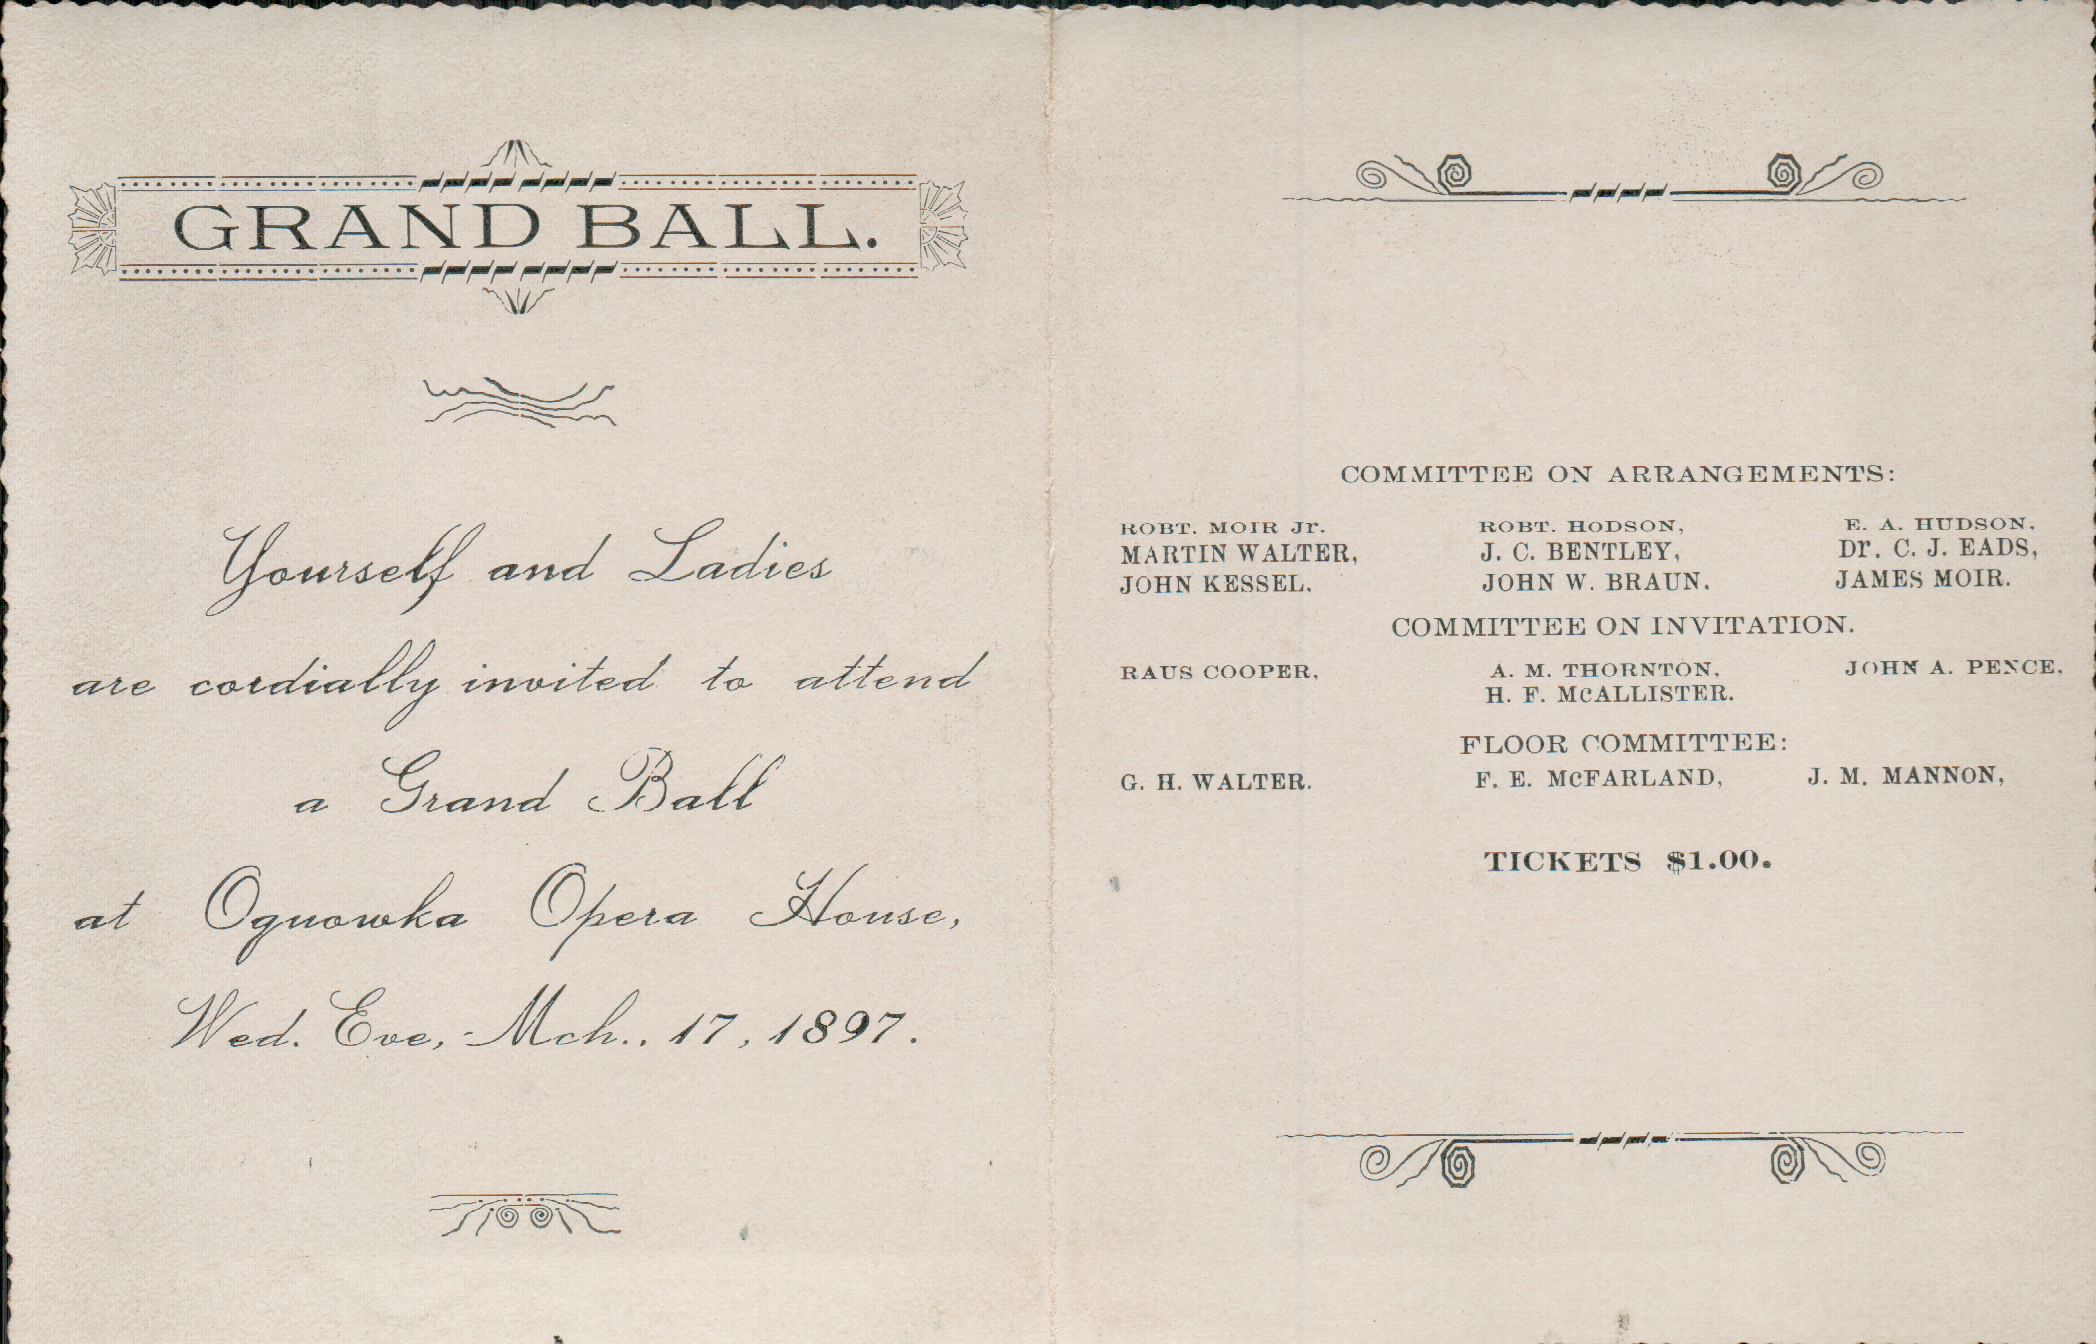 GRAND BALL.
Yourself and Ladies
are cordially invited to attend
a Grand Ball
at Oguowka Opera House,
Wed. Eve, Mch., 17, 1897.
COMMITTEE ON ARRANGEMENTS:
ROBT. MOIR Jr. ROBT. HODSON, E. A. HUDSON,
MARTIN WALTER, J. C. BENTLEY, Dr. C. J. EADS,
JOHN KESSEL, JOHN W. BRAUN. JAMES MOIR.
COMMITTEE ON INVITATION.
RAUS COOPER, A. M. THORNTON, JOHN A. PENCE,
H. F. McALLISTER.
FLOOR COMMITTEE:
G. H. WALTER. F. E. McFARLAND, J. M. MANNON,
TICKETS $1.00.